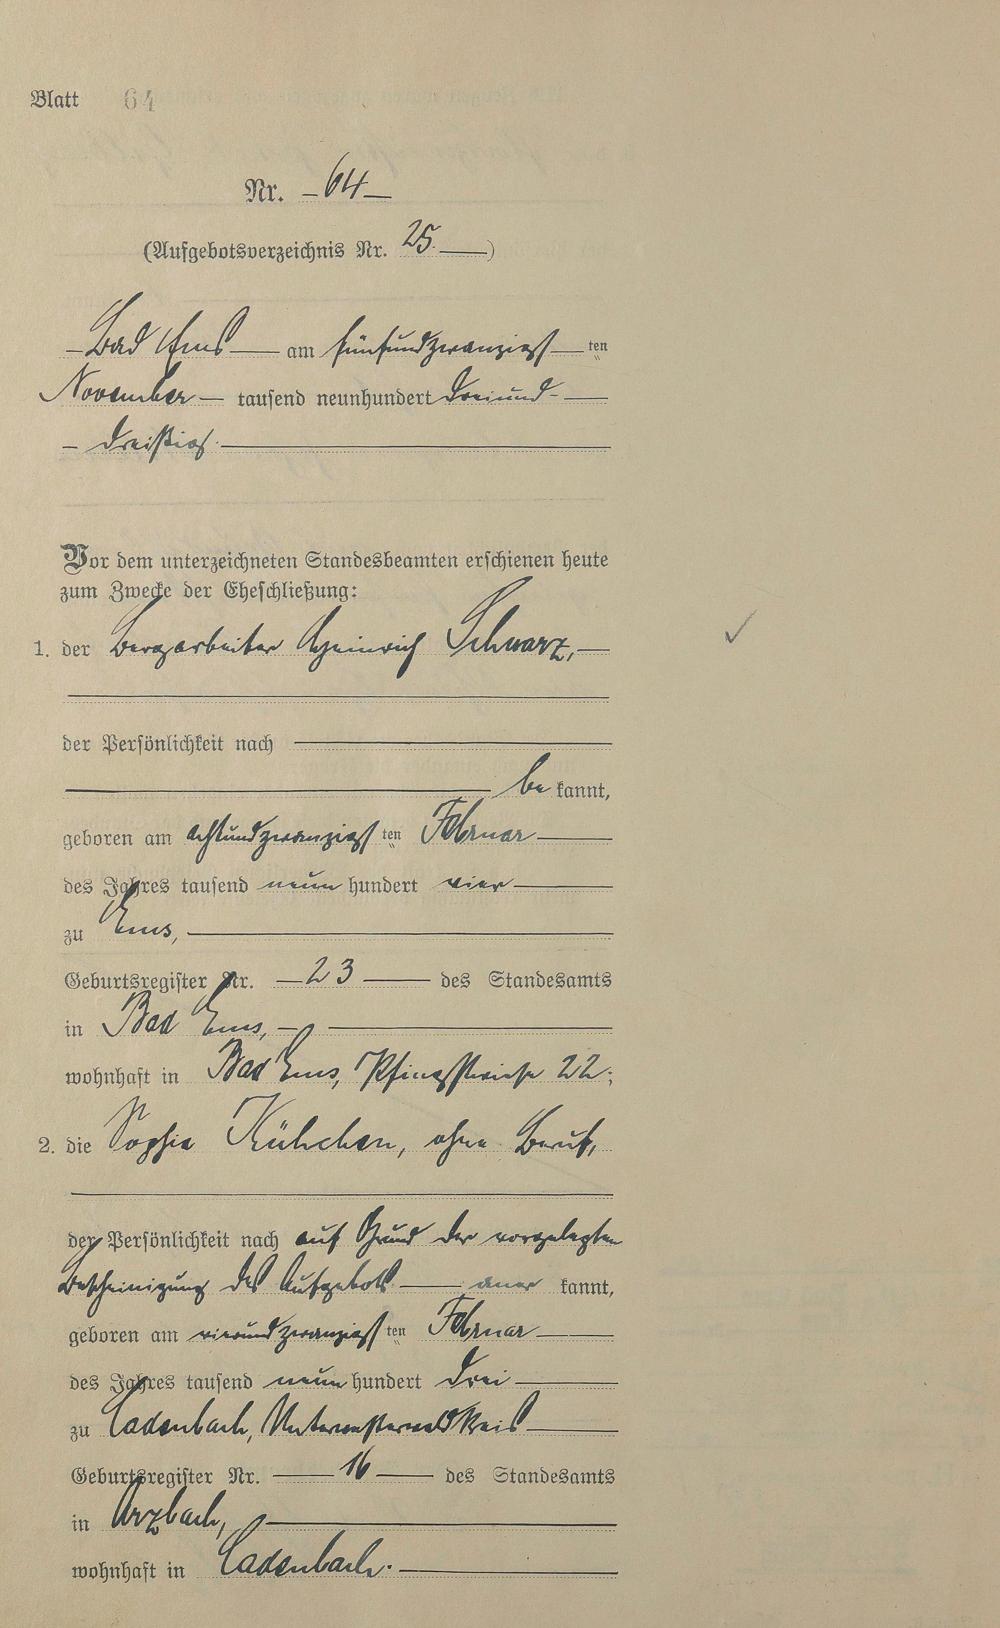 Blatt 64
Nr. 64
(Aufgebotsverzeichnis Nr. 25.)
Bad Ems am fünfundzwanzigsten
November tausend neunhundert dreiund-
dreißig.
Vor dem unterzeichneten Standesbeamten erschienen heute
zum Zwecke der Eheschließung:
1. der Bergarbeiter Heinrich Schwarz,
der Persönlichkeit nach
be kannt,
geboren am achtundzwanzigsten Februar
des Jahres tausend neun hundert vier
zu Ems,
Geburtsregister Nr. 23 des Standesamts
in Bad Ems,
wohnhaft in Bad Ems, Pfingstwiese 22;
2. die Sophie Kühchen, ohne Beruf,
der Persönlichkeit nach auf Grund der vorgelegten
Bescheinigung des Aufgebots aner kannt,
geboren am vierundzwanzigsten Februar
des Jahres tausend neun hundert drei
zu Cadenbach, Unterwesterwaldkreis
Geburtsregister Nr. 16 des Standesamts
in Arzbach,
wohnhaft in Cadenbach.